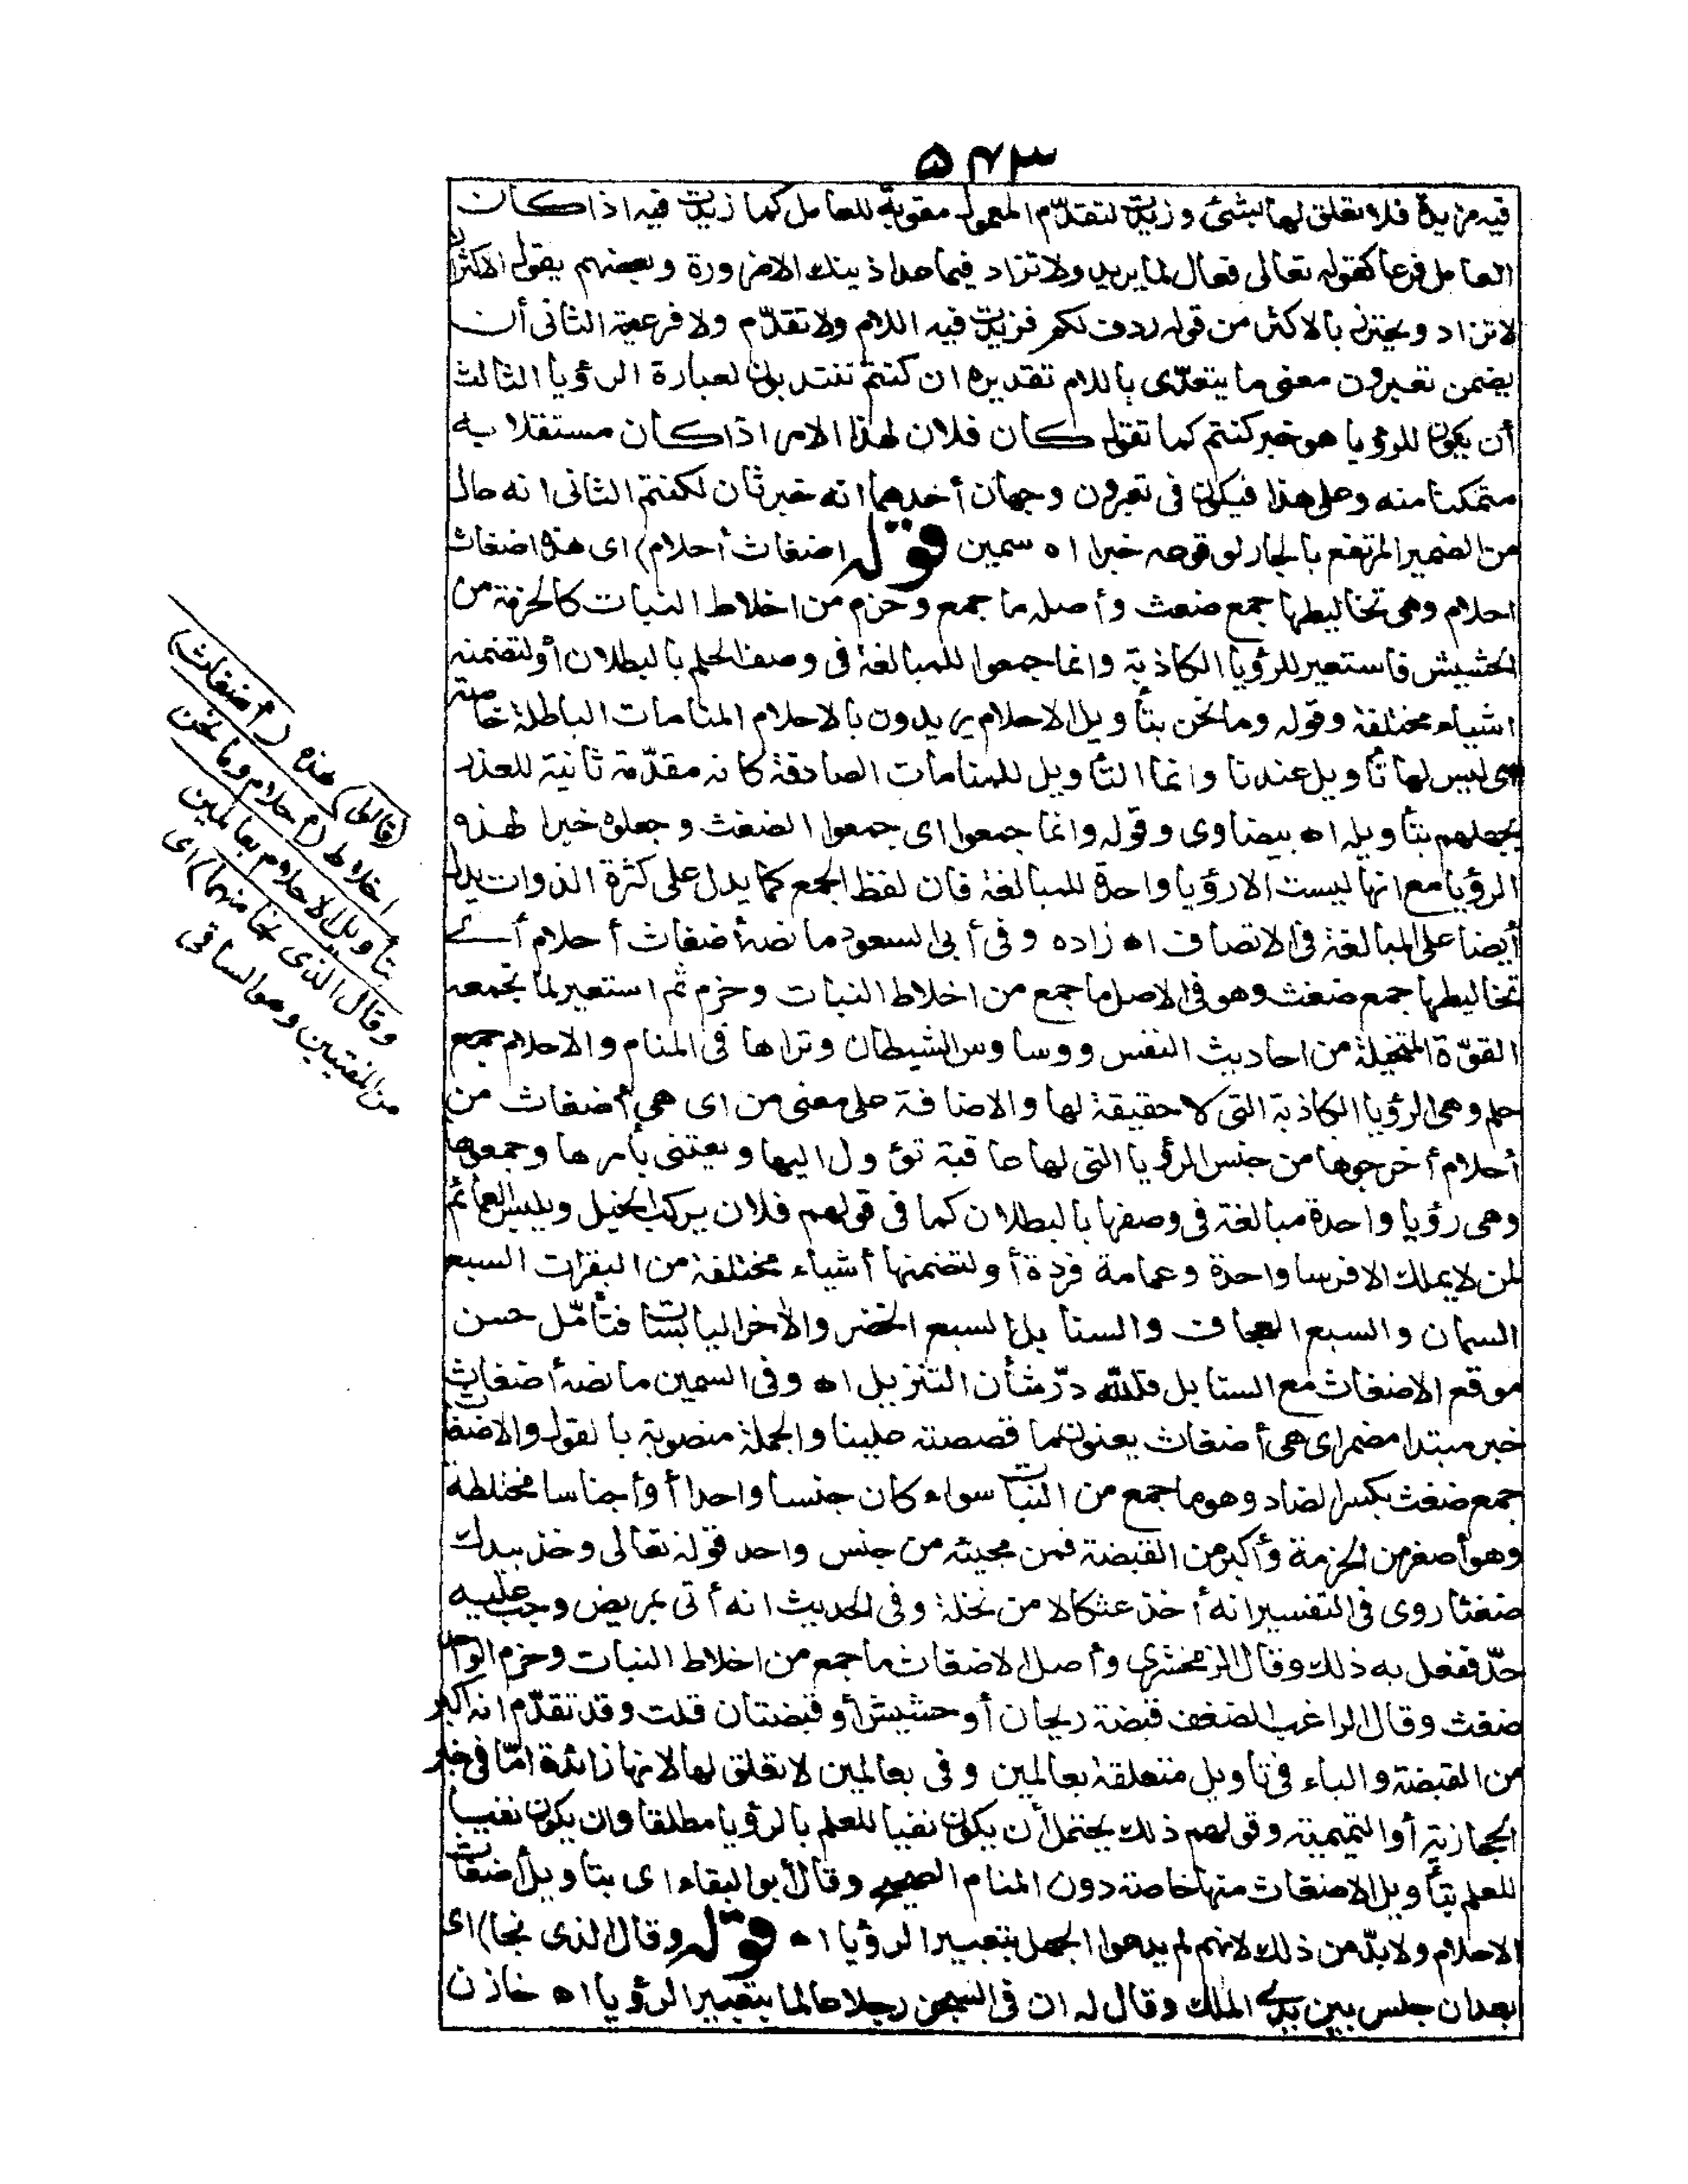 ۵۴۳
فيه مزيدة فلا تعلق لها بشئ وزيدت لتقدّم المعمول مقوية للعامل كما زيدت فيه اذا كان
العامل فرعا كقوله تعالى فعال لما يريد ولا تزاد فيما عدا ذينك الا ضرورة وبعضهم يقول الاكثر
لا تزاد ويحترز بالاكثر من قوله ردف لكم فزيدت فيه اللام ولا تقدّم ولا فرعية الثانى أن
يضمن تعبرون معنى ما يتعدّى باللام تقديره ان كنتم تنتدبون لعبارة الرؤيا الثالث
أن يكون للرؤيا هو خبر كنتم كما تقول كان فلان لهذا الامر اذا كان مستقلا به
متمكنا منه وعلى هذا فيكون فى تعبرون وجهان أحدهما انه خبر ثان لكنتم الثانى انه حال
من الضمير المرتفع بالجار لوقوعه خبرا اه سمين قوله اضغاث أحلام) اى هذه اضغاث
احلام وهى تخاليطها جمع ضغث وأصله ما جمع وحزم من اخلاط النبات كالحزمة من
الحشيش فاستعير للرؤيا الكاذبة وانما جمعوا للمبالغة فى وصف الحلم بالبطلان أو لتضمنه
اشياء مختلفة وقوله وما نحن بتأويل الاحلام يريدون بالاحلام المنامات الباطلة خاصة
اى ليس لها تأويل عندنا وانما التأويل للمنامات الصادقة كانه مقدّمة ثانية للعذر
بجهلهم بتأويله اه بيضاوى وقوله وانما جمعوا اى جمعوا الضغث وجعلوه خبرا لهذه
الرؤيا مع انها ليست الا رؤيا واحدة للمبالغة فان لفظ الجمع كما يدل على كثرة الذوات يدل
أيضا على المبالغة فى الاتصاف اه زاده وفى أبى السعود ما نصه أضغاث أحلام أى
تخاليطها جمع ضغث وهو فى الاصل ما جمع من اخلاط النبات وحزم ثم استعير لما تجمعه
القوّة المتخيلة من احاديث النفس ووساوس الشيطان وتراها فى المنام والاحلام جمع
حلم وهى الرؤيا الكاذبة التى لا حقيقة لها والاضافة على معنى من اى هى أضغاث من
أحلام أخرجوها من جنس الرؤيا التى لها عاقبة تؤول اليها ويعتنى بأمرها وجمعوها
وهى رؤيا واحدة مبالغة فى وصفها بالبطلان كما فى قولهم فلان يركب الخيل ويلبس العمائم
لمن لا يملك الا فرسا واحدة وعمامة فردة أو لتضمنها أشياء مختلفة من البقرات السبع
السمان والسبع العجاف والسنابل السبع الخضر والأخر اليابسات فتأمّل حسن
موقع الاضغاث مع السنابل فللّه درّ شأن التنزيل اه وفى السمين ما نصه أضغاث
خبر مبتدا مضمر اى هى أضغاث يعنون ما قصصته علينا والجملة منصوبة بالقول والاضغاث
جمع ضغث بكسر الضاد وهو ما جمع من النبات سواء كان جنسا واحدا أو أجناسا مختلطة
وهو أصغر من الحزمة وأكبر من القبضة فمن مجيئه من جنس واحد قوله تعالى وخذ بيدك
ضغثا روى فى التفسير انه أخذ عثكالا من نخلة وفى الحديث انه أتى بمريض وجب عليه
حدّ ففعل به ذلك وقال الزمخشرى وأصل الاضغاث ما جمع من اخلاط النبات وحزم الواحد
ضغث وقال الراغب الضغث قبضة ريحان أو حشيش أو قبضتان قلت وقد تقدّم انه اكبر
من القبضة والباء فى تاويل متعلقة بعالمين وفى بعالمين لا تعلق لها لانها زائدة امّا فى خبر
الحجازية أو التميمية وقولهم ذلك يحتمل أن يكون نفيا للعلم بالرؤيا مطلقا وان يكون نفيا
للعلم بتأويل الاضغاث منها خاصة دون المنام الصحيح وقال أبو البقاء اى بتاويل أضغاث
الاحلام ولا بدّ من ذلك لانهم لم يدعوا الجهل بتعبير الرؤيا اه قوله وقال الذى نجا) اى
بعد ان جلس بين يدى الملك وقال له ان فى السجن رجلا عالما بتعبير الرؤيا اه خازن
(قالوا) هذه (أضغاث)
اخلاط (احلام وما نحن
بتأويل الاحلام بعالمين
وقال الذى نجا منهما) اى
من الفتيين وهو الساقى